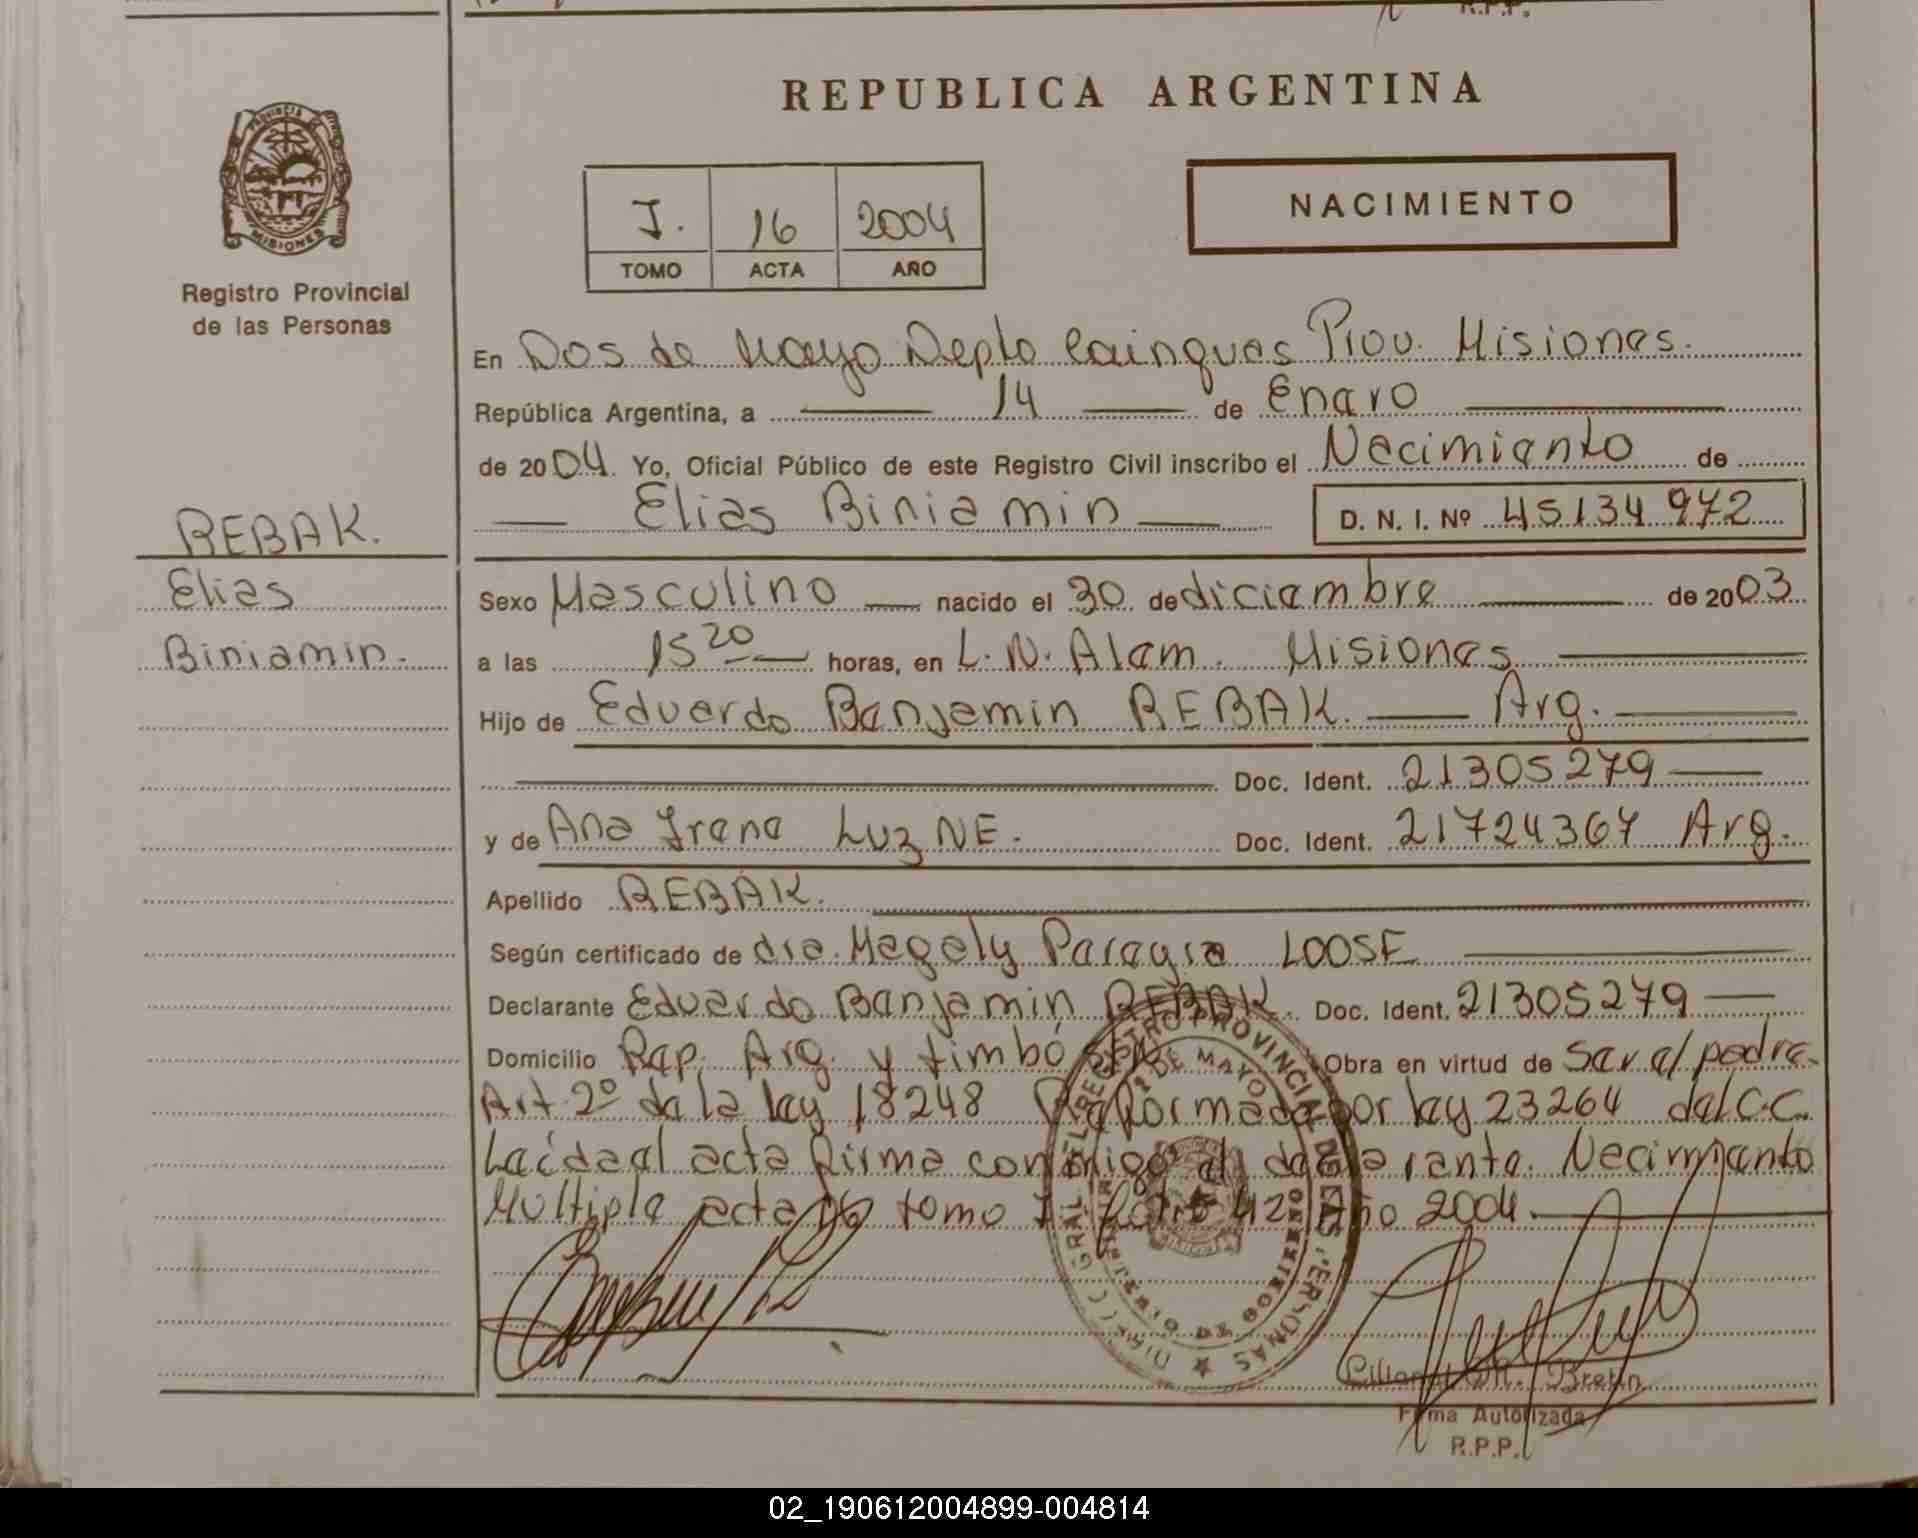 R.P.P.
REPUBLICA ARGENTINA
PROVINCIA DE
MISIONES
Registro Provincial
de las Personas
I. 16 2004
TOMO ACTA AÑO
NACIMIENTO
En Dos de Mayo Depto Cainguas Prov. Misiones.
República Argentina, a 14 de Enero
de 2004. Yo, Oficial Público de este Registro Civil inscribo el Nacimiento de
Elias Biniamin D. N. I. Nº 45134972
REBAK.
Elias
Biniamin.
Sexo Masculino nacido el 30 de diciembre de 2003
a las 15 20 horas, en L. N. Alem. Misiones
Hijo de Eduardo Benjamin REBAK. Arg.
Doc. Ident. 21305279
y de Ana Irene LUZNE. Doc. Ident. 21724367 Arg.
Apellido REBAK.
Según certificado de dra. Magaly LOOSE
Declarante Eduardo Benjamin REBAK. Doc. Ident. 21305279
Domicilio Rep. Arg. y timbó S/N Obra en virtud de ser el padre.
Art 2º de la ley 18248 Reformada por ley 23264 del C.C.
Leída el acta firma conmigo el declarante. Nacimiento
Multiple acta 16 tomo I 42 Año 2004.
REGISTRO PROVINCIAL DE LAS PERSONAS
2 DE MAYO
MINISTERIO DE GOBIERNO
Firma Autorizada
R.P.P.
02_190612004899-004814